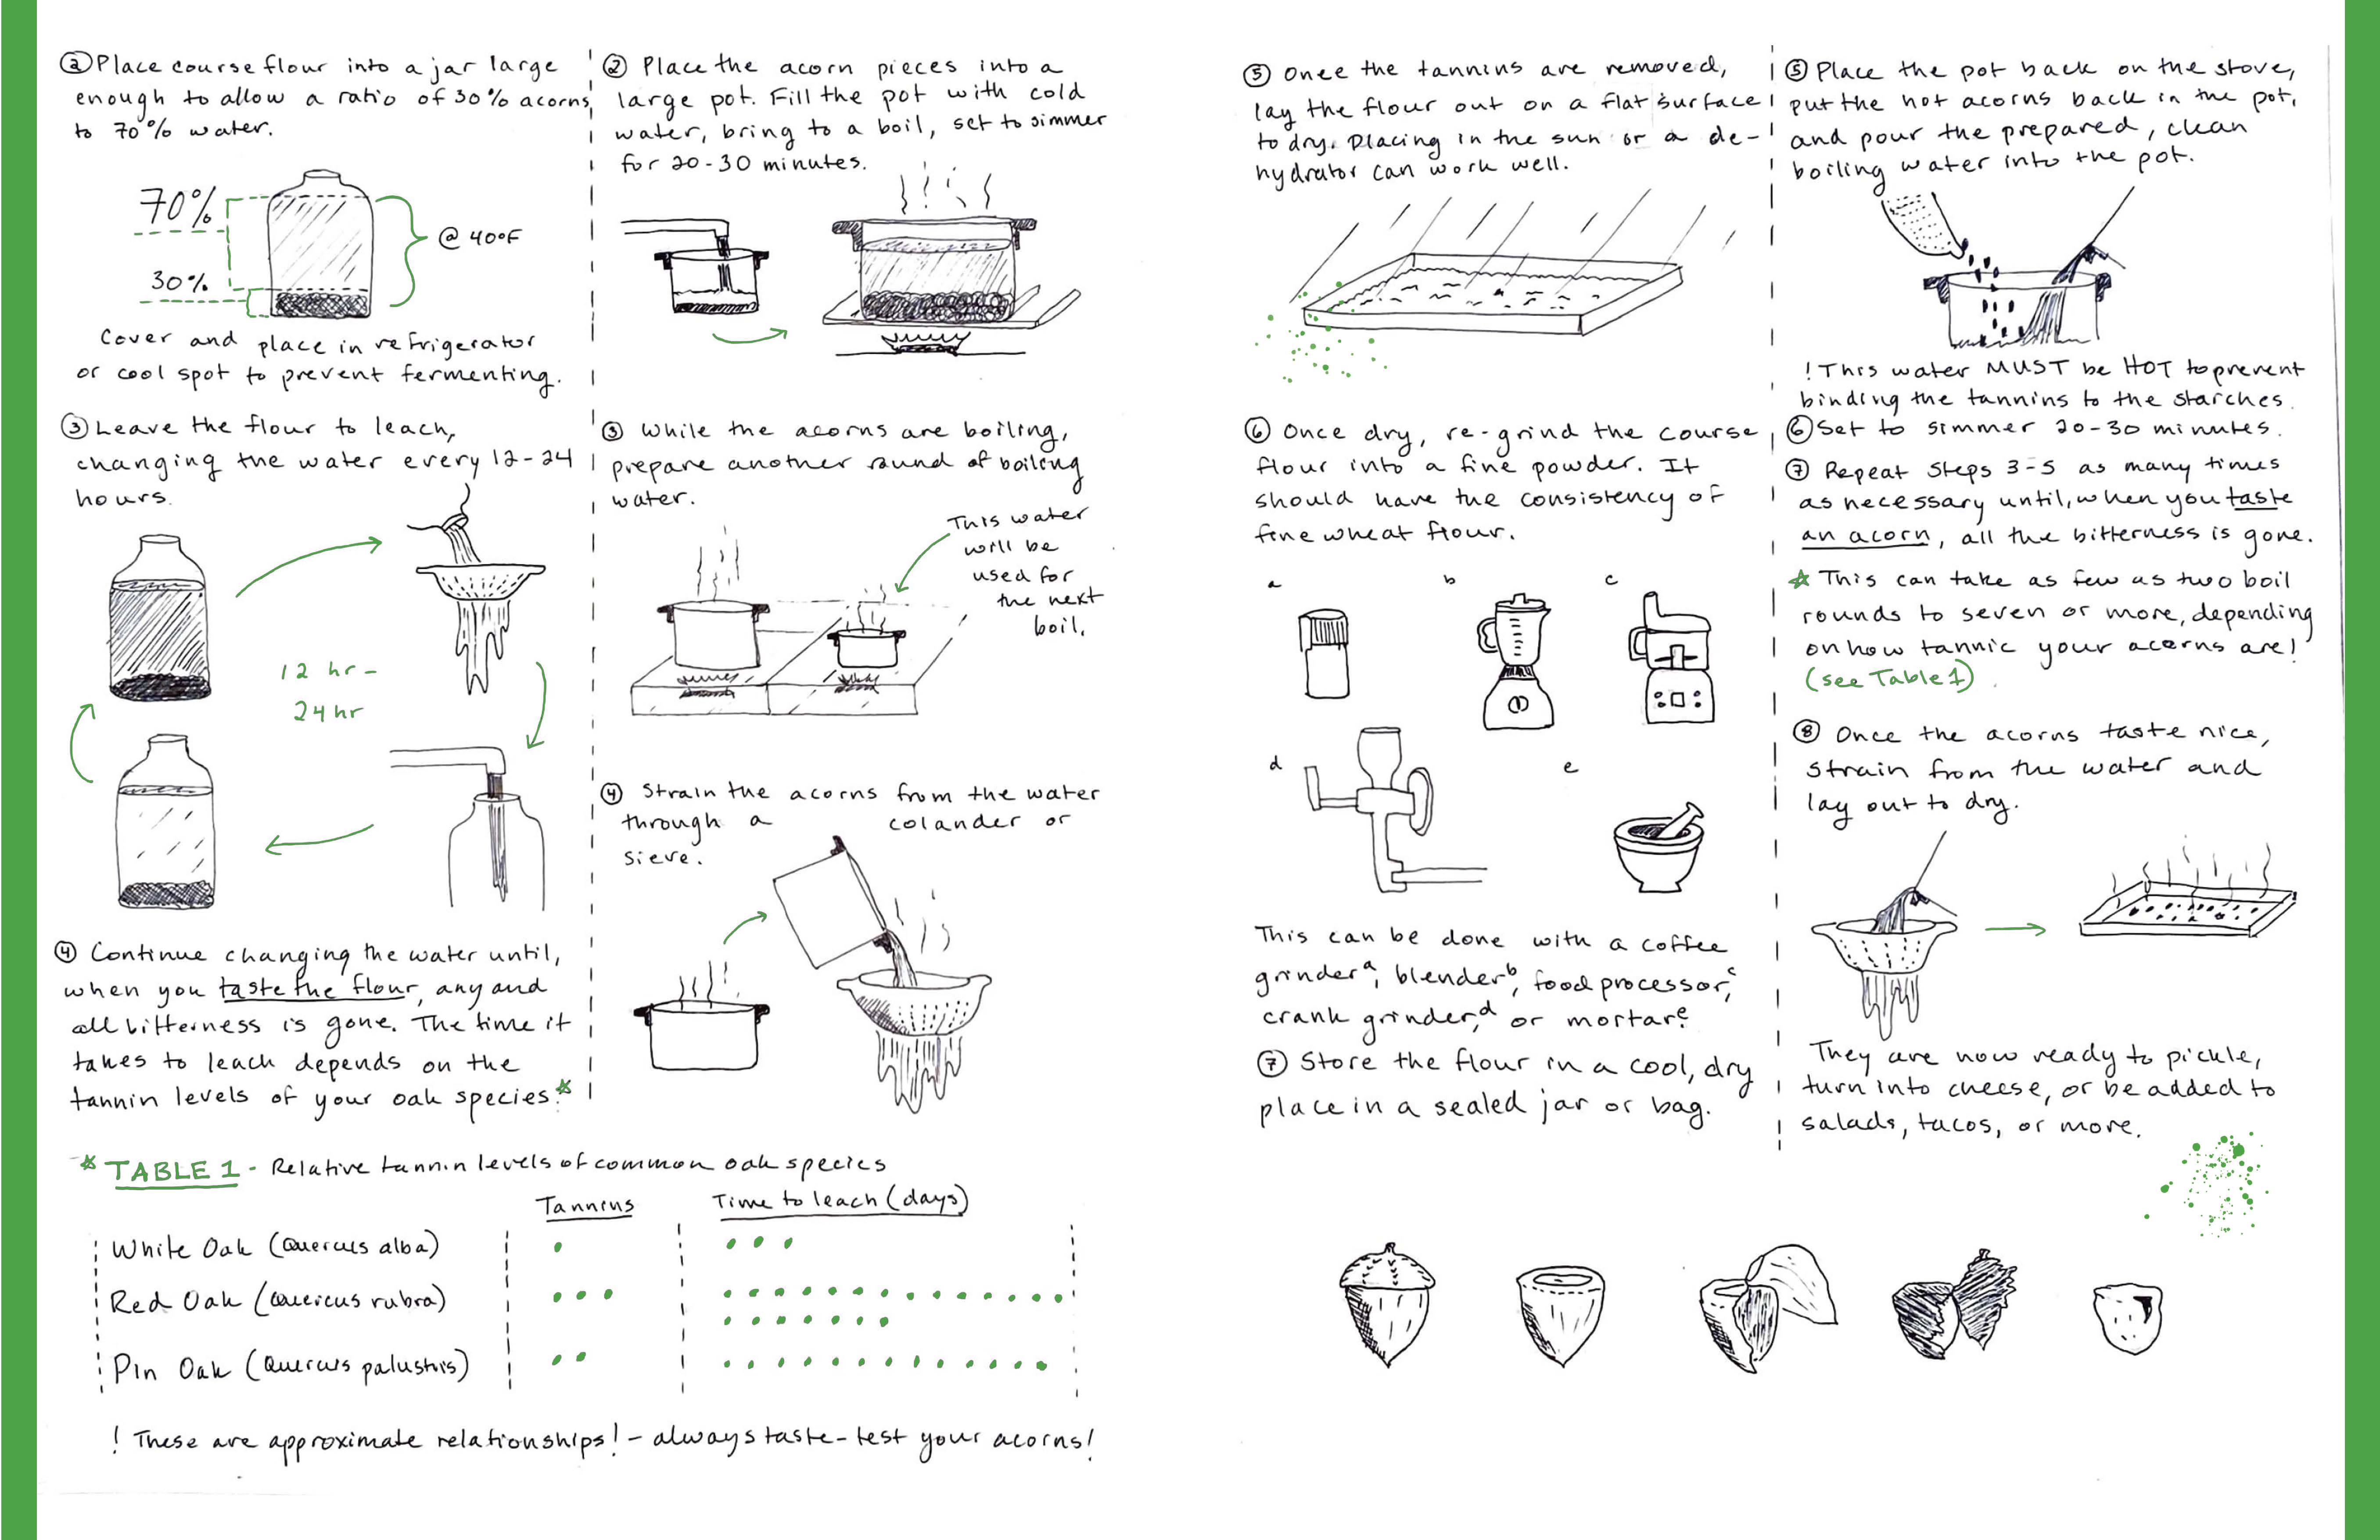 ② Place course flour into a jar large
enough to allow a ratio of 30% acorns
to 70% water.
70%
30%
@ 40°F
Cover and place in refrigerator
or cool spot to prevent fermenting.
③ Leave the flour to leach,
changing the water every 12-24
hours.
12 hr -
24 hr
④ Continue changing the water until,
when you taste the flour, any and
all bitterness is gone. The time it
takes to leach depends on the
tannin levels of your oak species.*
② Place the acorn pieces into a
large pot. Fill the pot with cold
water, bring to a boil, set to simmer
for 20-30 minutes.
③ While the acorns are boiling,
prepare another round of boiling
water.
This water
will be
used for
the next
boil.
④ Strain the acorns from the water
through a colander or
sieve.
* TABLE 1 - Relative tannin levels of common oak species
Tannins Time to leach (days)
White Oak (Quercus alba)
Red Oak (Quercus rubra)
Pin Oak (Quercus palustris)
! These are approximate relationships! - always taste-test your acorns!
⑤ Once the tannins are removed,
lay the flour out on a flat surface
to dry. Placing in the sun or a de-
hydrator can work well.
⑥ Once dry, re-grind the course
flour into a fine powder. It
should have the consistency of
fine wheat flour.
a b c
d e
This can be done with a coffee
grinder a, blender b, food processor, c
crank grinder, d or mortar. e
⑦ Store the flour in a cool, dry
place in a sealed jar or bag.
⑤ Place the pot back on the stove,
put the hot acorns back in the pot,
and pour the prepared, clean
boiling water into the pot.
! This water MUST be HOT to prevent
binding the tannins to the starches.
⑥ Set to simmer 20-30 minutes.
⑦ Repeat Steps 3-5 as many times
as necessary until, when you taste
an acorn, all the bitterness is gone.
* This can take as few as two boil
rounds to seven or more, depending
on how tannic your acorns are!
(see Table 1)
⑧ Once the acorns taste nice,
strain from the water and
lay out to dry.
They are now ready to pickle,
turn into cheese, or be added to
salads, tacos, or more.